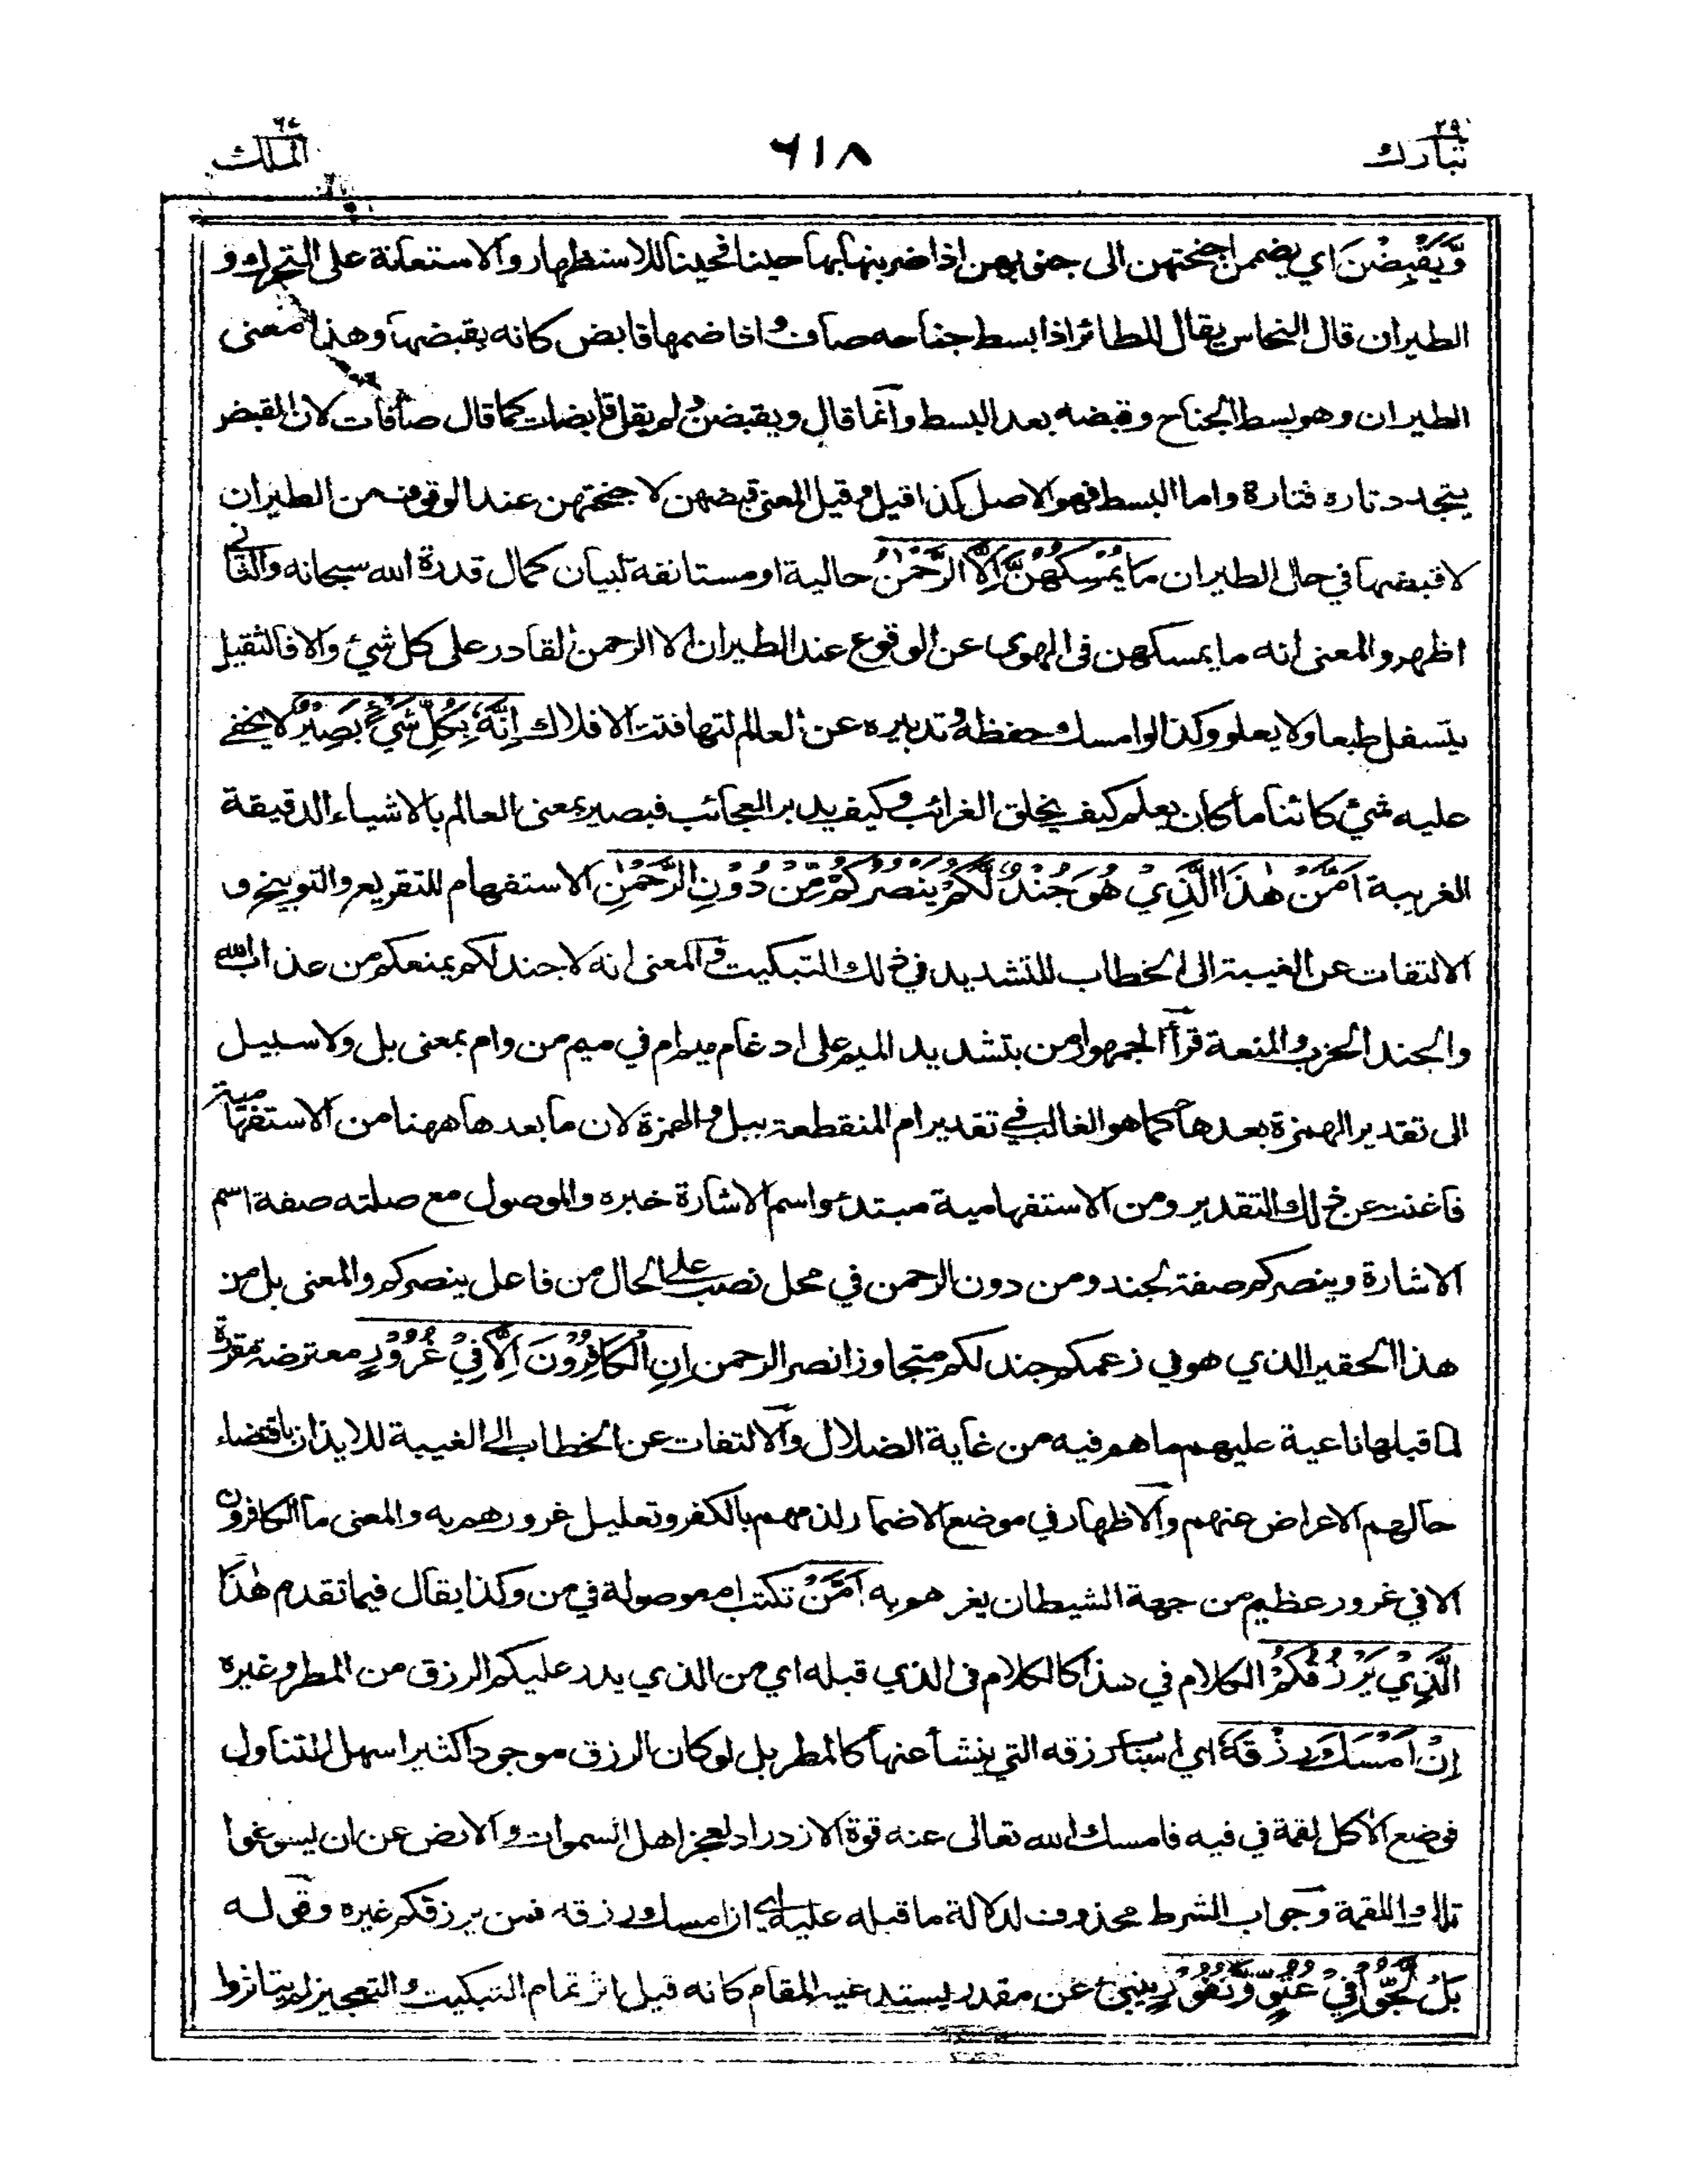 تبارك ٢٩
٦١٨
الملك ٦٧
وَّيَقْبِضْنَ اي يضممن اجنحتهن الى جنوبهن اذا ضربنها بها حينا فحينا للاستظهار والاستعانة على التحرك و
الطيران قال النحاس يقال للطائر اذا بسط جناحه صاف واذا ضمها قابض كانه يقبضها وهذا معنى
الطيران وهو بسط الجناح وقبضه بعد البسط وانما قال ويقبضن ولم يقل قابضات كما قال صافات لان القبض
يتجدد تارة فتارة واما البسط فهو الاصل كذا قيل وقيل المعنى قبضهن لاجنحتهن عند الوقوف من الطيران
لا قبضها في حال الطيران مَا يُمْسِكُهُنَّ اِلَّا الرَّحْمٰنُ حالية او مستانفة لبيان كمال قدرة الله سبحانه والثاني
اظهر والمعنى انه ما يمسكهن فى الهوى عن الوقوع عند الطيران الا الرحمن القادر على كل شيء والا فالثقيل
يتسفل طبعا ولا يعلو وكذا لو امسك حفظه وتدبيره عن العالم لتهافتت الافلاك اِنَّهٗ بِكُلِّ شَيْءٍ بَصِيْرٌ لا يخفى
عليه شيء كائنا ما كان يعلم كيف يخلق الغرائب وكيف يدبر العجائب فبصير بمعنى العالم بالاشياء الدقيقة
الغريبة اَمَّنْ هٰذَا الَّذِيْ هُوَ جُنْدٌ لَّكُمْ يَنْصُرُكُمْ مِّنْ دُوْنِ الرَّحْمٰنِ الاستفهام للتقريع والتوبيخ و
الالتفات عن الغيبة الى الخطاب للتشديد في ذلك التبكيت والمعنى انه لا جند لكم يمنعكم من عذاب الله
والجند الحزب والمنعة قرأ الجمهور امن بتشديد الميم على ادغام ميم ام في ميم من وام بمعنى بل ولا سبيل
الى تقدير الهمزة بعدها كما هو الغالب في تقدير ام المنقطعة ببل والهمزة لان ما بعدها ههنا من الاستفهامية
فاغنت عن ذلك التقدير ومن الاستفهامية مبتدء واسم الاشارة خبره والموصول مع صلته صفة اسم
الاشارة وينصركم صفة لجند ومن دون الرحمن في محل نصب على الحال من فاعل ينصركم والمعنى بل من
هذا الحقير الذي هو في زعمكم جند لكم متجاوزا نصر الرحمن اِنِ الْكَافِرُوْنَ اِلَّا فِيْ غُرُوْرٍ معترضة مقررة
لما قبلها ناعية عليهم ما هم فيه من غاية الضلال والالتفات عن الخطاب الى الغيبة للايذان باقتضاء
حالهم الاعراض عنهم والاظهار في موضع الاضمار لذمهم بالكفر وتعليل غرورهم به والمعنى ما الكافرون
الا في غرور عظيم من جهة الشيطان يغرهم به اَمَّنْ تكتب ام موصولة في من وكذا يقال فيما تقدم هٰذَا
الَّذِيْ يَرْزُقُكُمْ الكلام في هذا كالكلام فى الذي قبله اي من الذي يدر عليكم الرزق من المطر وغيره
اِنْ اَمْسَكَ رِزْقَهٗ اي اسباب رزقه التي ينشأ عنها كالمطر بل لو كان الرزق موجودا كثيرا سهل التناول
فوضع الأكل لقمة في فيه فامسك الله تعالى عنه قوة الازدراد لعجز اهل السموات والارض عن ان يسوغوا
تلك اللقمة وجواب الشرط محذوف لدلالة ما قبله عليه اي ان امسك رزقه فمن يرزقكم غيره وقوله
بَلْ لَّجُّوْا فِيْ عُتُوٍّ وَّنُفُوْرٍ ينبئ عن مقدر يستدعيه المقام كانه قيل اثر تمام التبكيت والتعجيز لم يتاثروا